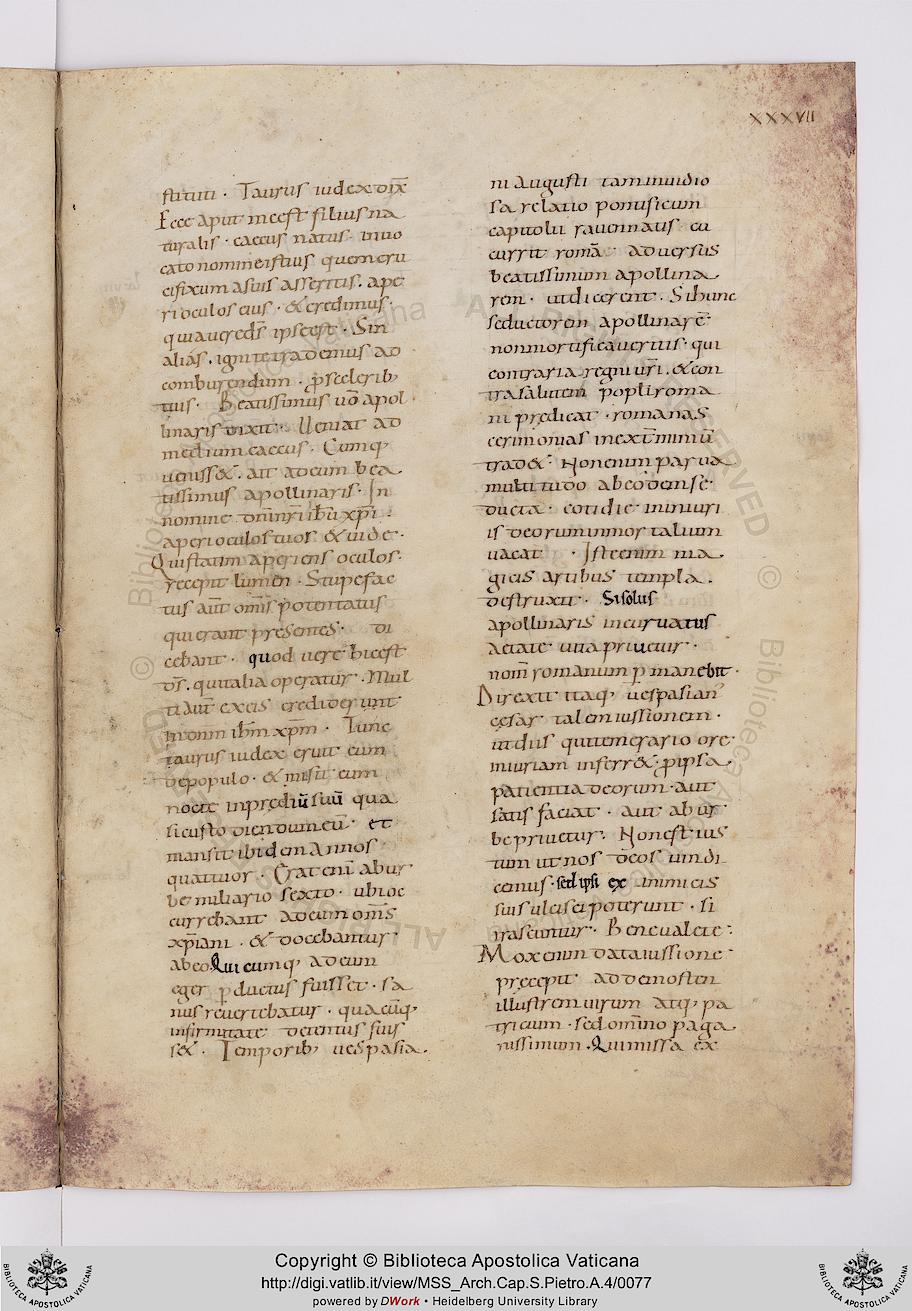 XXXVII
stituti · Taurus iudex dix̄
Ecce aput me est filius na
turalis · caecus natus · inuo
cato nomine istius quem cru
cifixum a suis asseritis · ape
ri oculos eius · & credimus ·
quia uereds̄ ipse est · Sin
alias · igni te trademus ad
comburendum · p̄ sceleribꝫ
tuis · Beatissimus uō apol
linaris dixit · Ueniat ad
medium caecus · Cumqꝫ
uenisset · ait ad eum bea
tissimus apollinaris · In
nomine dn̄i nr̄i ihū xp̄i ·
aperi oculos tuos & uide ·
Qui statim aperiens oculos ·
recepit lumen · Stupefac
tus aūt om̄s potentatus
qui erant presentes · di
cebant · quod uere hic est
ds̄ · qui talia operatur · Mul
ti aūt ex eis crediderunt
in dn̄m ihm̄ xp̄m · Tunc
taurus iudex eruit eum
de populo · & misit eum
nocte in prediū suū qua
si custodiendum eū · et
mansit ibidem annos
quattuor · Erat enī ab ur
be miliario sexto · ubi oc
currebant ad eum om̄s
xp̄iani · & docebantur ·
ab eo Quicumqꝫ ad eum
eger p̱ductus fuisset · sa
nus reuertebatur · quacūqꝫ
infirmitate detentus fuis
s& · Temporibꝫ uespasia
ni augusti tam inuidio
sa relatio pontificum
capitolii rauennatis · cu
currit romā · aduersus
beatissimum apollina
rem · ut dicerent · Si hunc
seductorem apollinarē ·
non mortificaueritis · qui
contraria regni ur̄i · & con
tra salutem popli roma
ni predicat · romanas
cerimonias in ext̄miniū
trad& · Non enim parua
multitudo ab eo dense
ducta · cotidie in iniuri
is deorum inmortalium
uacat · Iste enim ma
gicis artibus templa
destruxit · Si solus
apollinaris incuruatus
aetate uita priuetur ·
nom̄ romanum p̱manebit ·
Direxit itaqꝫ uespasian'
cesar talem iussionem ·
ut diis qui temerario ore
iniuriam inferr& · p̱ ipsa
patientia deorum · aut
satis faciat · aut ab ur
be priuetur · Non est ius
tum ut nos deos uindi
cemus · sed ipsi ex inimicis
suis ulcisci poterunt · si
irascuntur · Bene ualete ·
Mox enim data iussione
precepit ad demosten
illustrem uirum atqꝫ pa
tricium · sed omnino paga
nissimum · Qui missa ex
Copyright © Biblioteca Apostolica Vaticana
http://digi.vatlib.it/view/MSS_Arch.Cap.S.Pietro.A.4/0077
powered by DWork • Heidelberg University Library